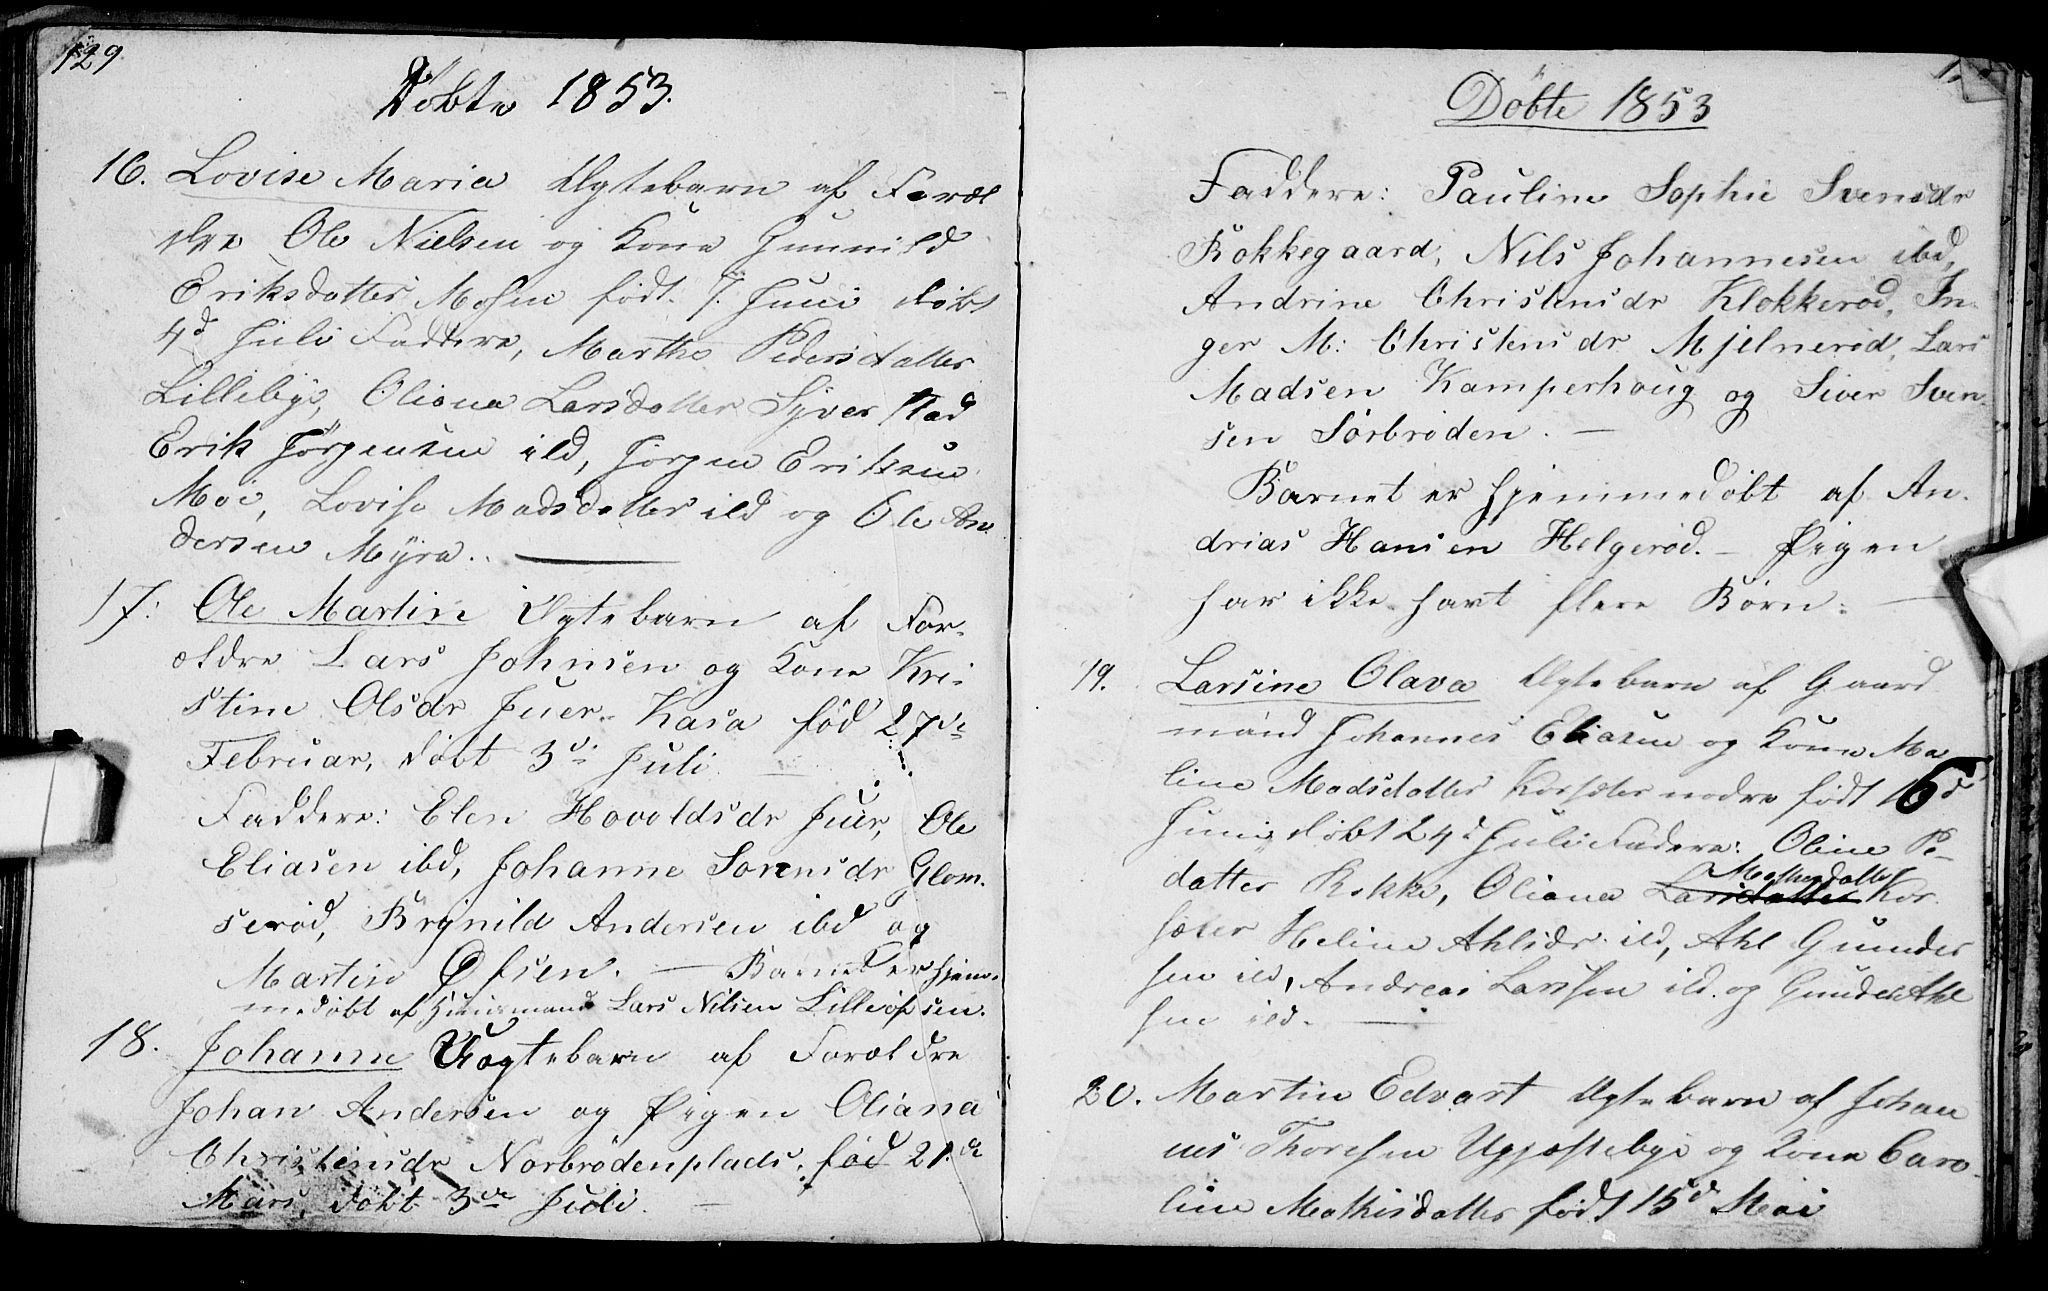 129
Döbte 1853.
16. Lovise Maria Ægtebarn af Foræl
dre Ole Nielsen og Kone Gunnild
Eriksdatter Mosen født 7. Juni døbt
4d Juli Faddere, Marthe Pedersdatter
Lillebye, Oliana Larsdatter Syverstad
Erik Jørgensen ibd, Jørgen Eriksen
Moe, Lovise Madsdatter ibd og Ole An
dersen Myra.
17. Ole Martin Ægtebarn af For-
ældre Lars Johnsen og Kone Kri-
stine Olsdr Juer-Kasa fød 27de
Februar, döbt 3di Juli.
Faddere: Elen Hovoldsdr Juer, Ole
Eliasen ibd, Johanne Sorensdr Glom-
seröd, Brynild Andersen ibd og
Martin Öfsen. — Barnet er hjem-
medöbt af Huusmand Lars Nilsen Lilleöfsen.
18. Johanne Uægtebarn af Forældre
Johan Andersen og Pigen Oliana
Christensdr Norbrödenplads, fød 21de
Mars, döbt 3de Juli.
Döbte 1853
Faddere: Pauline Sophie Svensdr
Bokkegaard, Nils Johannesen ibd,
Andrine Christensdr Klokkeröd, In-
ger M: Christensdr Mjelneröd, Lars
Madsen Kamperhoug og Siver Sven-
sen Sörbröden. —
Barnet er hjemmedöbt af An-
drias Hansen Helgeröd. — Pigen
har ikke havt flere Börn. —
19. Larsine Olava Ægtebarn af Gaard
mand Johannes Eliasen og Kone Ma
line Madsdatter Korsæter nedre født 16d
Juni døbt 24d Juli Faddere: Oline Pe-
datter Rokke, Oliana Larsdatter Mathisdatter Kor-
sæter Heline Ahlsdr ibd, Ahl Gunder
sen ibd, Andreas Larssen ibd. og Gunder Ahl
sen ibd. —
20. Martin Edvart Ægtebarn af Johan
nes Thoresen Ugjestebye og Kone Caro-
line Mathisdatter født 15d Mai